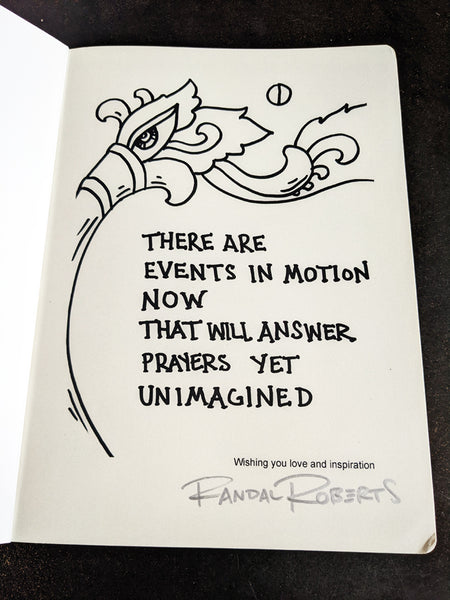 THERE ARE
EVENTS IN MOTION
NOW
THAT WILL ANSWER
PRAYERS YET
UNIMAGINED
Wishing you love and inspiration
RANDAL ROBERTS